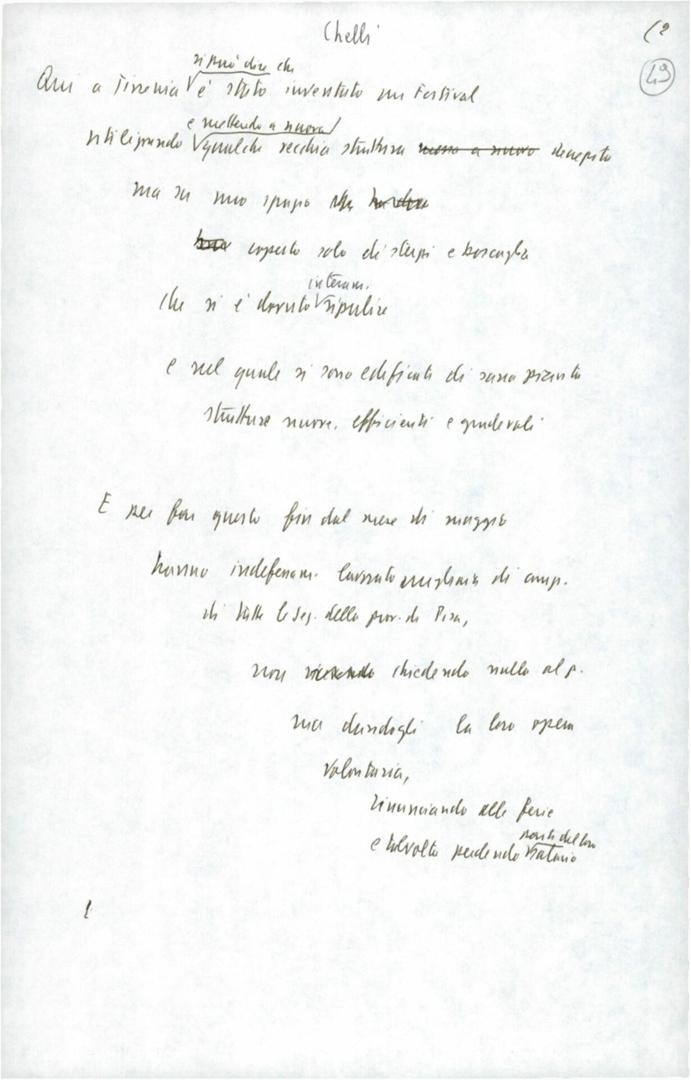 Chelli
49
si può dire che
Qui a Tirrenia è stato inventato un Festival
e mettendo a nuovo
utilizzando qualche vecchia struttura messa a nuovo decrepita
ma su uno spazio
coperto solo di sterpi e boscaglia
interam.
che si è dovuto ripulire
e nel quale si sono edificati di sana pianta
strutture nuove, efficienti e gradevoli
E per far questo fin dal mese di maggio
hanno indefessam. lavorato migliaia di comp.
di tutte le seg. della prov. di Pisa,
non chiedendo nulla al p.
ma dandogli la loro opera
volontaria,
rinunciando alle ferie
parte del loro
e talvolta perdendo salario